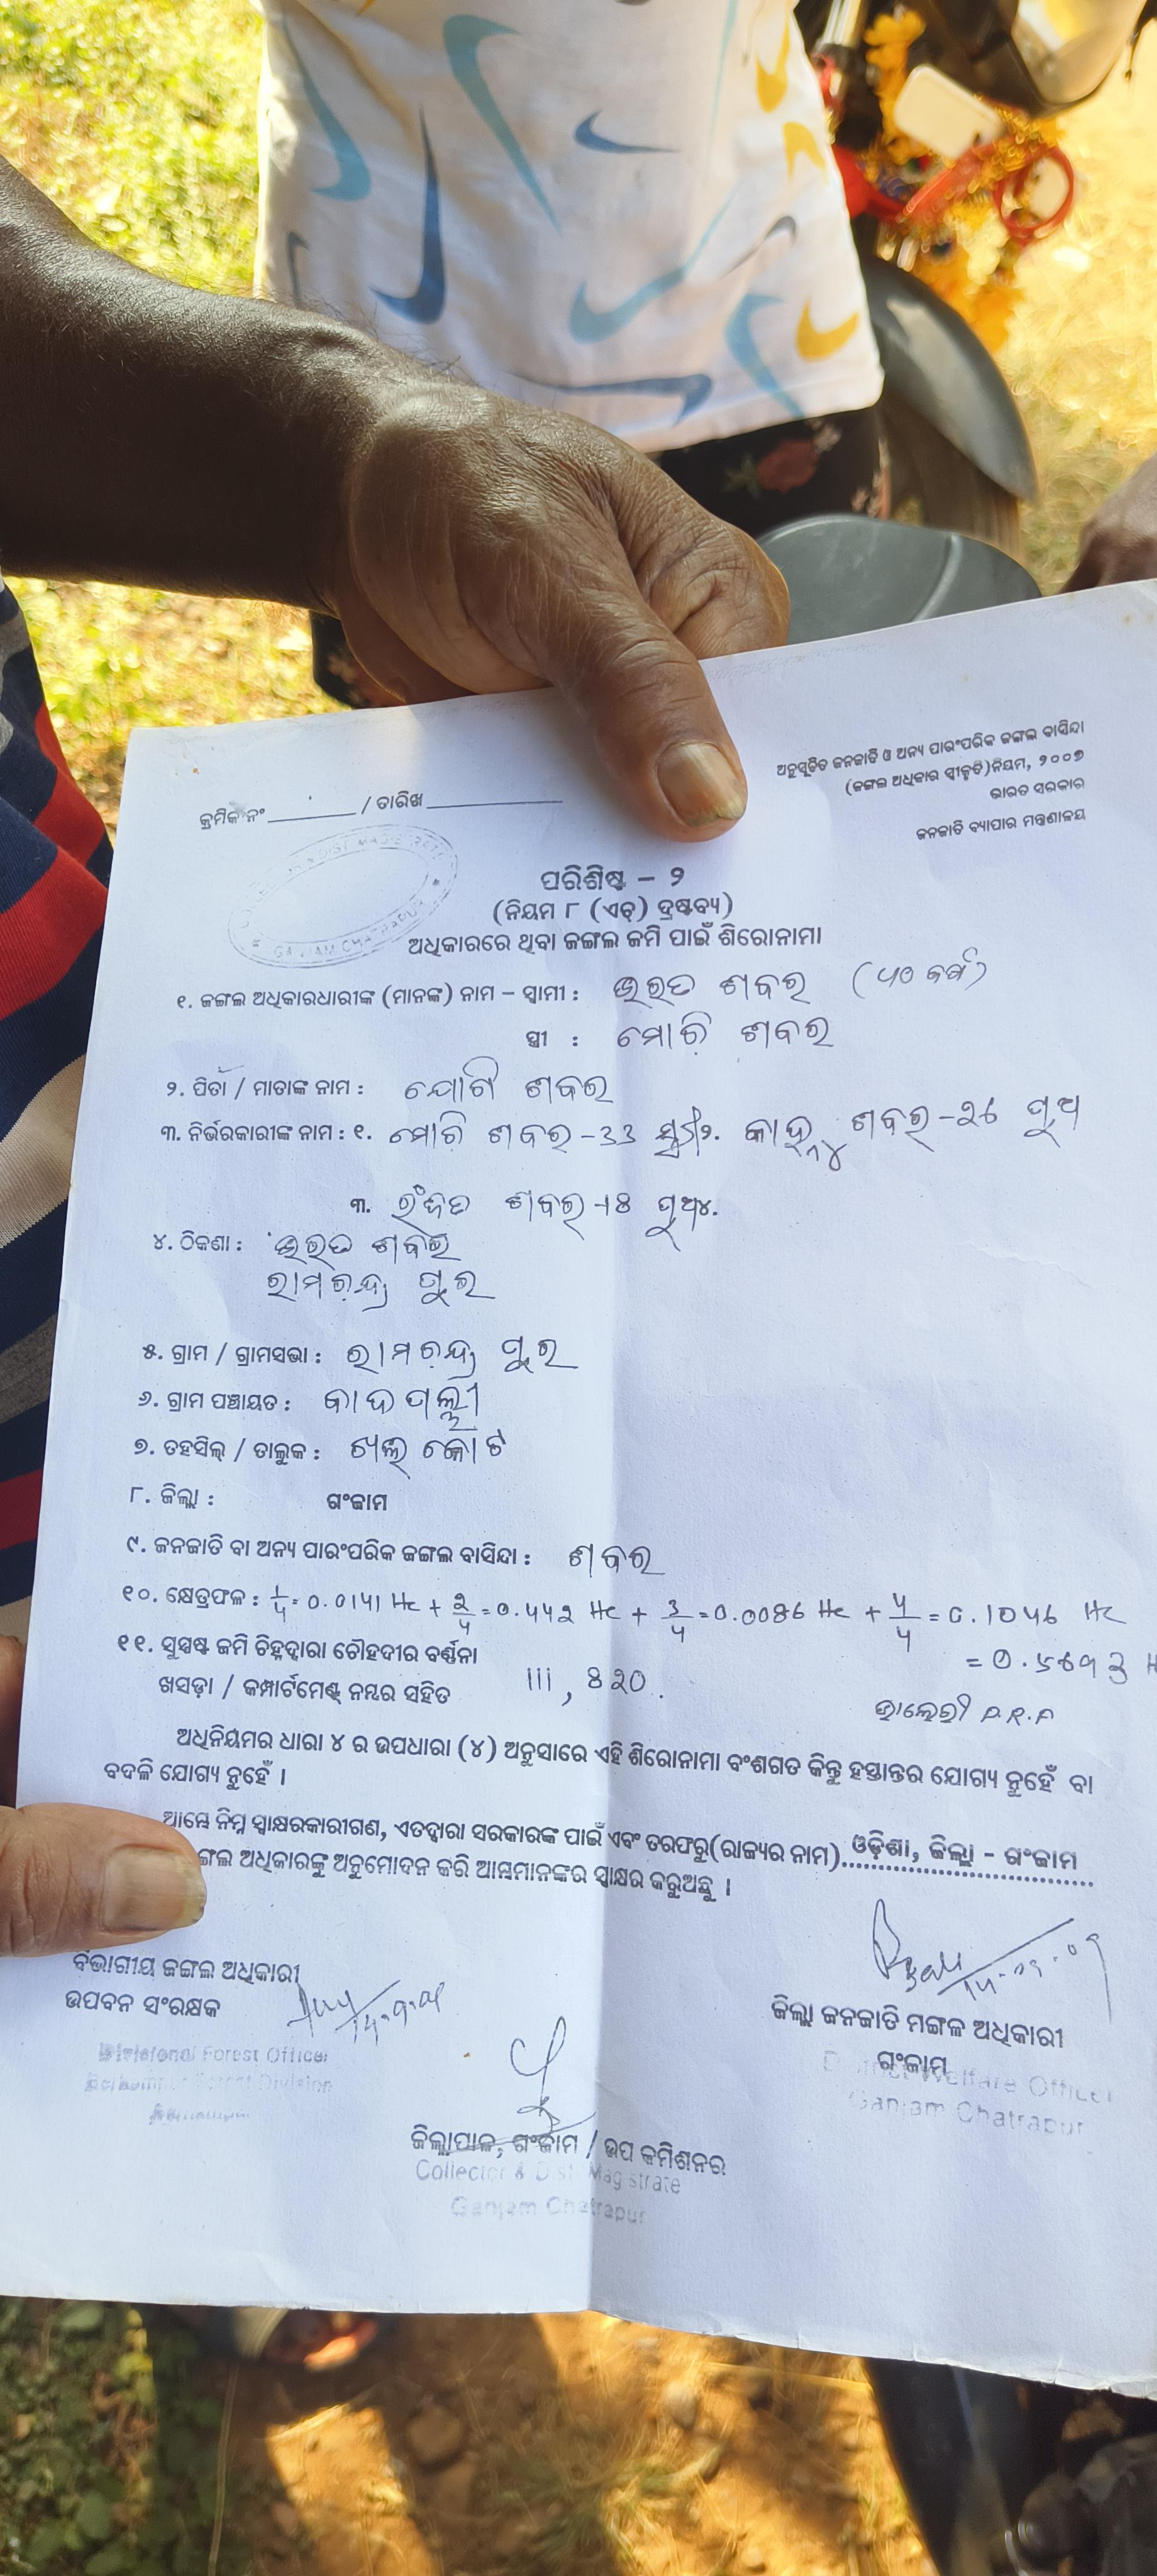 ଅନୁସୂଚିତ ଜନଜାତି ଓ ଅନ୍ୟ ପାରଂପରିକ ଜଙ୍ଗଲ ବାସିନ୍ଦା
(ଜଙ୍ଗଲ ଅଧିକାର ସ୍ୱୀକୃତି)ନିୟମ, ୨୦୦୭
ଭାରତ ସରକାର
ଜନଜାତି ବ୍ୟାପାର ମନ୍ତ୍ରଣାଳୟ
କ୍ରମିକ ନଂ ________ / ତାରିଖ ____________
GANJAM CHATRAPUR
ପରିଶିଷ୍ଟ – ୨
(ନିୟମ ୮ (ଏଚ୍) ଦ୍ରଷ୍ଟବ୍ୟ)
ଅଧିକାରରେ ଥିବା ଜଙ୍ଗଲ ଜମି ପାଇଁ ଶିରୋନାମା
୧. ଜଙ୍ଗଲ ଅଧିକାରଧାରୀଙ୍କ (ମାନଙ୍କ) ନାମ – ସ୍ୱାମୀ : ଭରତ ଶବର (୪୦ ବର୍ଷ)
ସ୍ତ୍ରୀ : ମୋଚି ଶବର
୨. ପିତା / ମାତାଙ୍କ ନାମ : ଯୋଗି ଶବର
୩. ନିର୍ଭରକାରୀଙ୍କ ନାମ : ୧. ମୋଚି ଶବର-33 ସ୍ତ୍ରୀ ୨. ଶବର-26 ପୁଅ
୩. ରଂଜିତ ଶବର-18 ପୁଅ ୪.
୪. ଠିକଣା : ଭରତ ଶବର
ରାମଚନ୍ଦ୍ର ପୁର
୫. ଗ୍ରାମ / ଗ୍ରାମସଭା : ରାମଚନ୍ଦ୍ର ପୁର
୬. ଗ୍ରାମ ପଞ୍ଚାୟତ :
୭. ତହସିଲ୍ / ତାଲୁକ : ଖଲ୍ଲିକୋଟ
୮. ଜିଲ୍ଲା : ଗଂଜାମ
୯. ଜନଜାତି ବା ଅନ୍ୟ ପାରଂପରିକ ଜଙ୍ଗଲ ବାସିନ୍ଦା : ଶବର
୧୦. କ୍ଷେତ୍ରଫଳ : 1/4 = 0.0141 Hc + 2/4 = 0.442 Hc + 3/4 = 0.0086 Hc + 4/4 = 0.1046 Hc
= 0.5693 H
୧୧. ସୁସ୍ପଷ୍ଟ ଜମି ଚିହ୍ନଦ୍ୱାରା ଚୌହଦୀର ବର୍ଣ୍ଣନା
ଖସଡ଼ା / କମ୍ପାର୍ଟମେଣ୍ଟ ନମ୍ବର ସହିତ 111, 820.
ଭାଲେରୀ P.R.F
ଅଧିନିୟମର ଧାରା ୪ ର ଉପଧାରା (୪) ଅନୁସାରେ ଏହି ଶିରୋନାମା ବଂଶଗତ କିନ୍ତୁ ହସ୍ତାନ୍ତର ଯୋଗ୍ୟ ନୁହେଁ ବା
ବଦଳି ଯୋଗ୍ୟ ନୁହେଁ ।
ଆମ୍ଭେ ନିମ୍ନ ସ୍ୱାକ୍ଷରକାରୀଗଣ, ଏତଦ୍ୱାରା ସରକାରଙ୍କ ପାଇଁ ଏବଂ ତରଫରୁ(ରାଜ୍ୟର ନାମ) ଓଡ଼ିଶା, ଜିଲ୍ଲା - ଗଂଜାମ
ଙ୍ଗଲ ଅଧିକାରଙ୍କୁ ଅନୁମୋଦନ କରି ଆମ୍ଭମାନଙ୍କର ସ୍ୱାକ୍ଷର କରୁଅଛୁ ।
ବିଭାଗୀୟ ଜଙ୍ଗଲ ଅଧିକାରୀ
ଉପବନ ସଂରକ୍ଷକ
Divisional Forest Officer
Division
ଜିଲ୍ଲା ଜନଜାତି ମଙ୍ଗଳ ଅଧିକାରୀ
ଗଂଜାମ
District Welfare Officer
Ganjam Chatrapur
ଜିଲ୍ଲାପାଳ, ଗଂଜାମ / ଉପ କମିଶନର
Collector & Dist. Magistrate
Ganjam Chatrapur